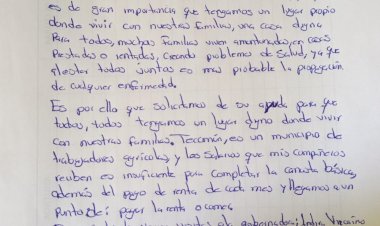 es de gran importancia que tengamos un lugar propio
donde vivir con nuestras familias, una casa digna
Para todos, muchas familias viven amontonados, en casas
Prestadas o rentadas, creando problemas de salud, ya que
al estar todos juntos es mas probable la propagación
de cualquier enfermedad.
Es por ello que solicitamos de su ayuda para que
todos, todos tengamos un lugar digno donde vivir
con nuestras familias. Tecomán, es un municipio de
trabajadores agrícolas y los Salarios que mis compañeros
reciben es insuficiente para completar la canasta básica,
además del pago de renta de cada mes y llegamos a un
punto de: pagar la renta o comer.
gobernadora: Indira Vizcaíno